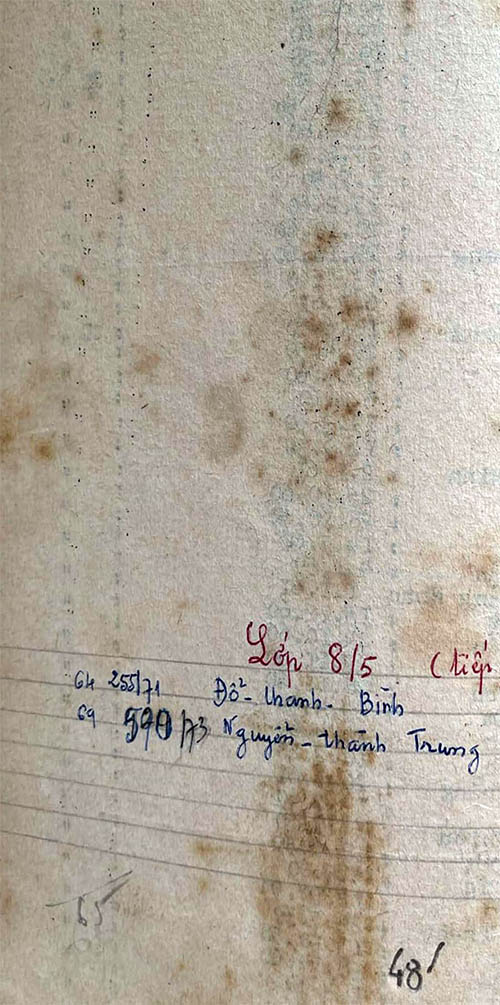 Lớp 8/5 (tiếp
64 255/71 Đỗ-thanh-Bình
69 590/73 Nguyễn-thành Trung
65
48